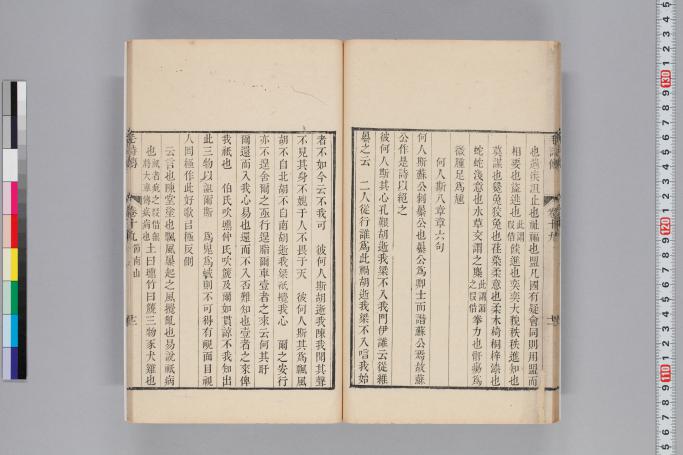 也遄疾沮止也祉福也盟凡國有疑會同則用盟而
相要也盜逃也此謂叚借餤進也奕奕大貌秩秩進知也
莫謀也毚兔狡兔也荏染柔意也柔木椅桐梓漆也
蛇蛇淺意也水草交謂之麋此謂之叚借拳力也骭瘍爲
微腫足爲尰
何人斯八章章六句
何人斯蘇公刺暴公也暴公爲卿士而譖蘇公焉故蘇
公作是詩以絕之
彼何人斯其心孔艱胡逝我梁不入我門伊誰云從維
暴之云 二人從行誰爲此禍胡逝我梁不入唁我始
者不如今云不我可 彼何人斯胡逝我陳我聞其聲
不見其身不愧于人不畏于天 彼何人斯其爲飄風
胡不自北胡不自南胡逝我梁祇攪我心 爾之安行
亦不遑舍爾之亟行遑脂爾車壹者之來云何其盱
爾還而入我心易也還而不入否難知也壹者之來俾
我祇也 伯氏吹壎仲氏吹篪及爾如貫諒不我知出
此三物以詛爾斯 爲鬼爲蜮則不可得有靦面目視
人罔極作此好歌吕極反側
云言也陳堂塗也飄風暴起之風攪亂也易說祇病
也土曰壎竹曰篪三物豕犬雞也
卷十九 節南山